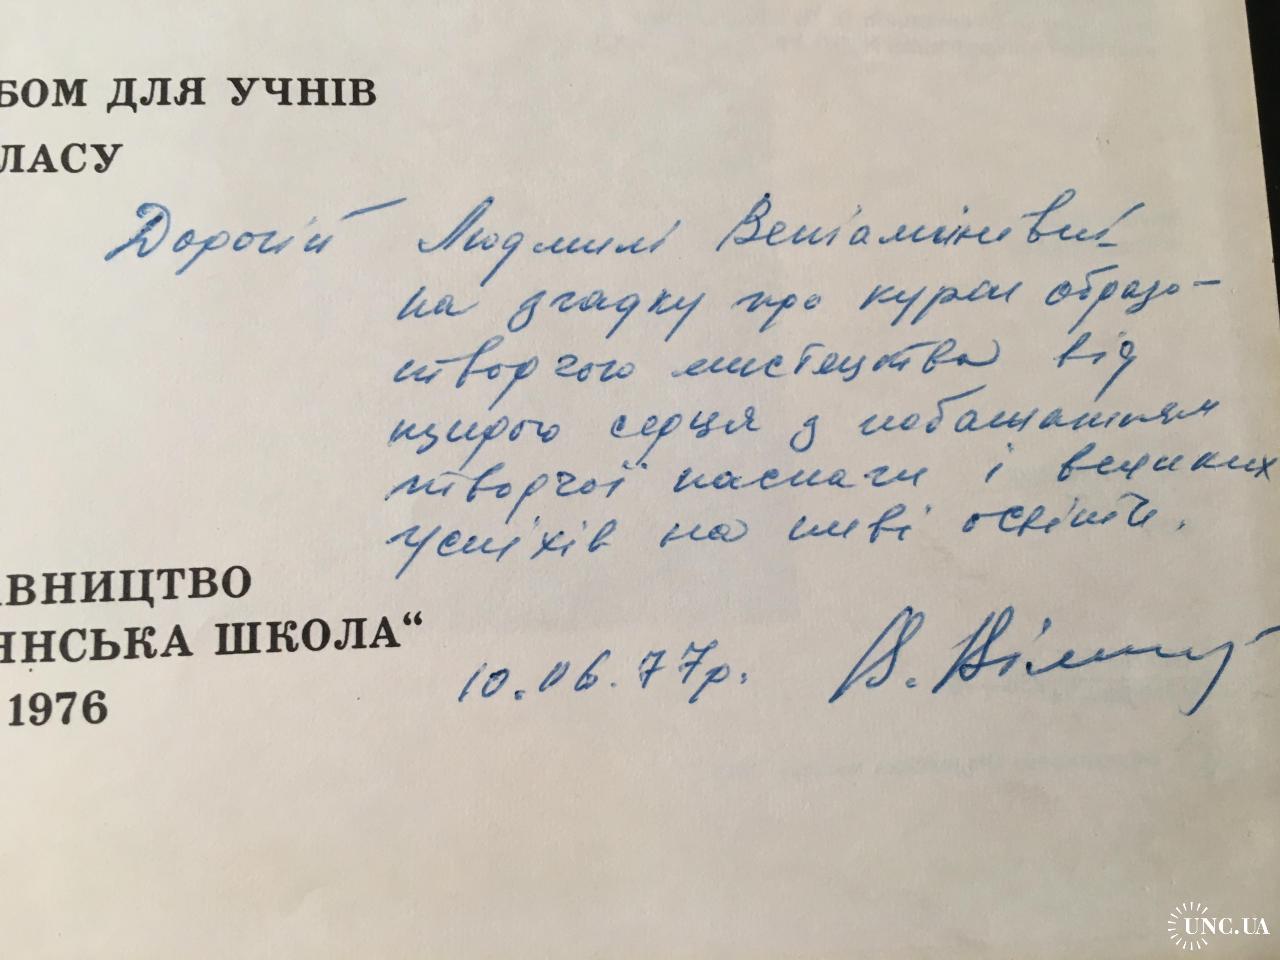 БОМ ДЛЯ УЧНІВ
ЛАСУ
Дорогій Людмилі Веніамінівні
на згадку про курси образо-
творчого мистецтва від
щирого серця з побажанням
творчої наснаги і великих
успіхів на ниві освіти.
ІВНИЦТВО
ЯНСЬКА ШКОЛА“
1976
10.06.77р.
В.
UNC.UA